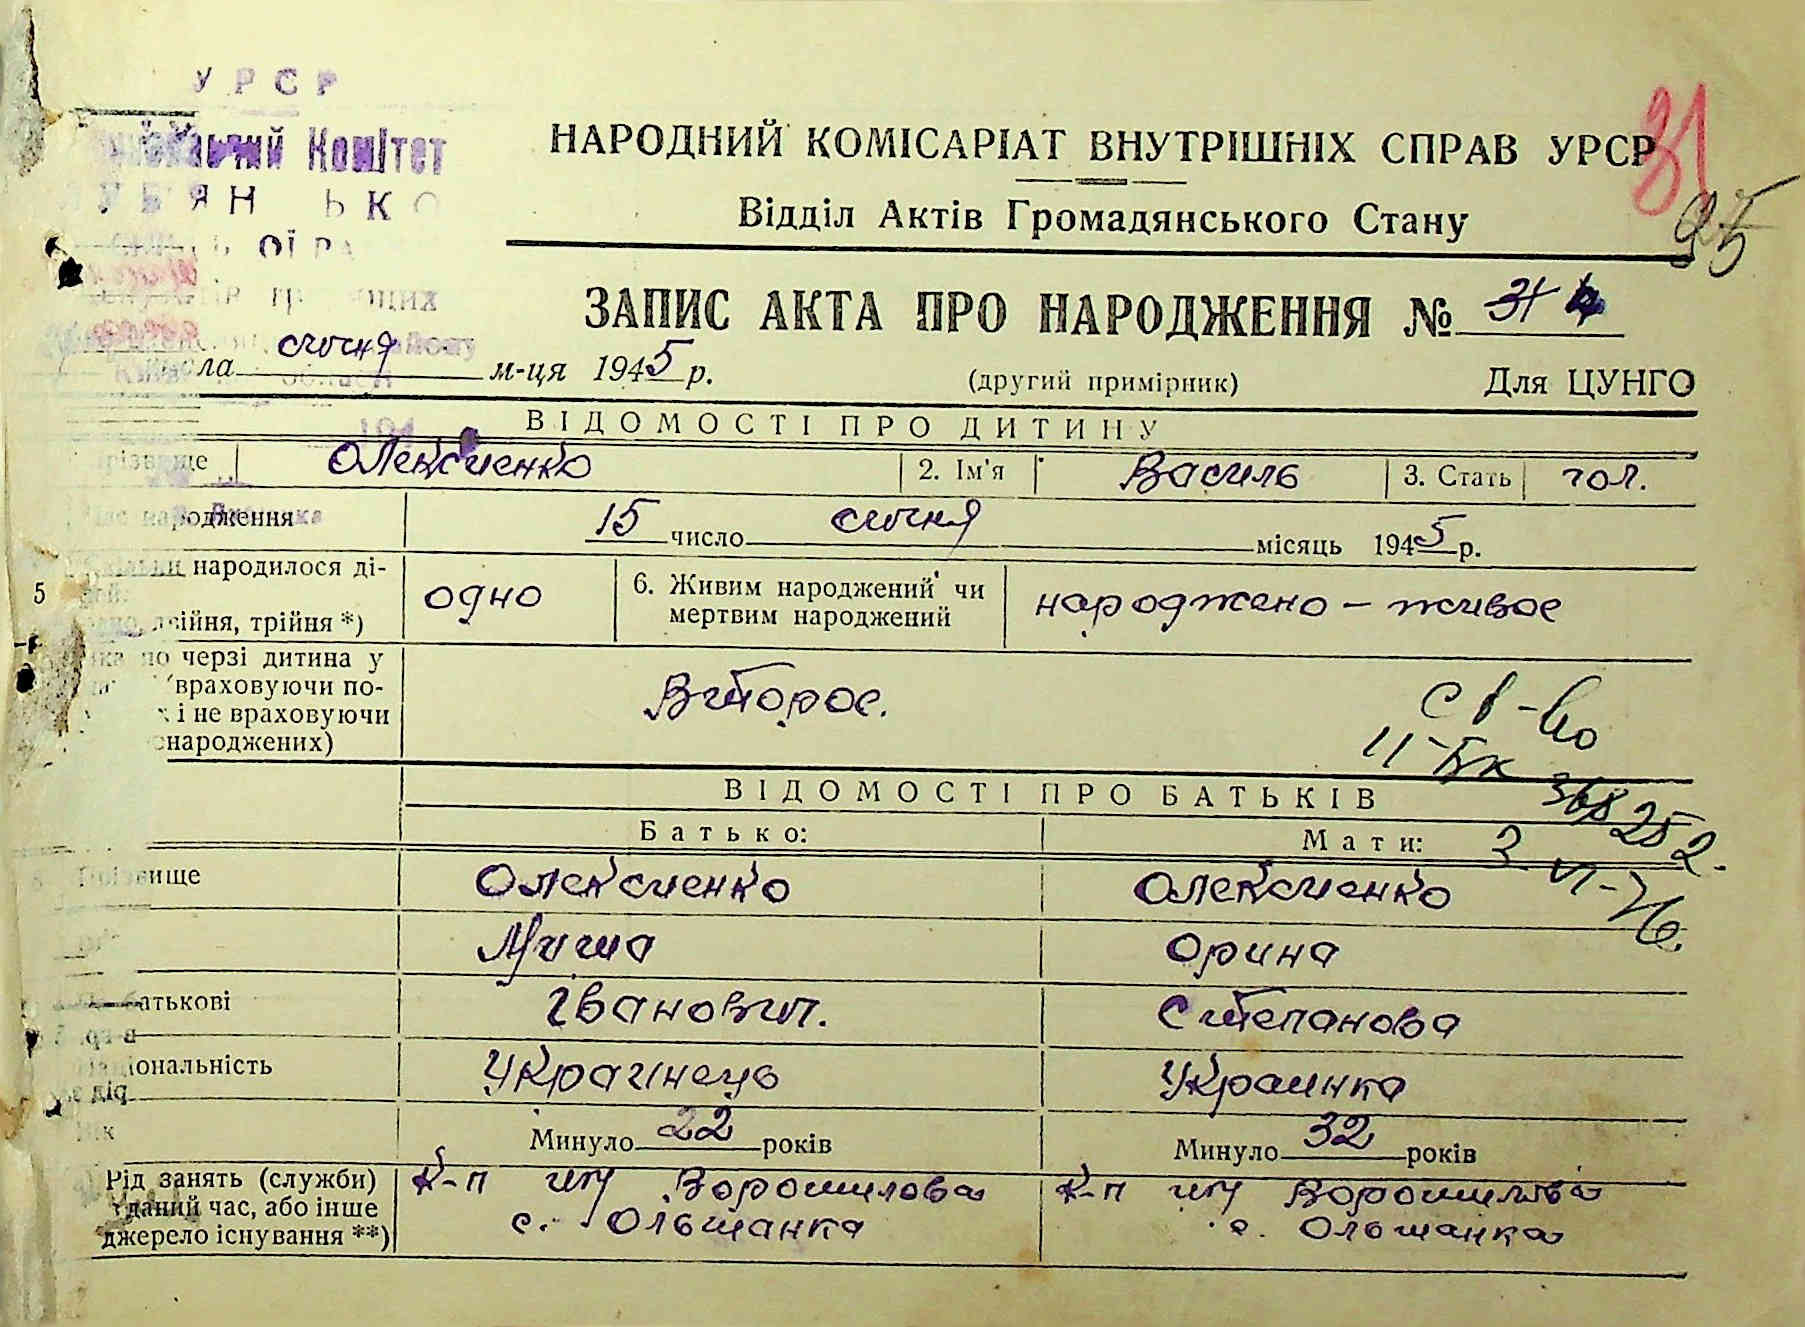 УРСР
Комітет
НАРОДНИЙ КОМІСАРІАТ ВНУТРІШНІХ СПРАВ УРСР
31
95
Відділ Актів Громадянського Стану
ЗАПИС АКТА ПРО НАРОДЖЕННЯ №
січня м-ця 1945 р.
(другий примірник)
Для ЦУНГО
ВІДОМОСТІ ПРО ДИТИНУ
Олексієнко 2. Ім'я Василь 3. Стать чол.
народження 15 число січня місяць 1945 р.
5 народилося ді-
двійня, трійня *)
одно
6. Живим народжений чи
мертвим народжений
народжено - живое
по черзі дитина у
(враховуючи по-
і не враховуючи
народжених)
Второе.
св-во
II-БК
368252.
3 VI-76.
ВІДОМОСТІ ПРО БАТЬКІВ
Батько: Мати:
Прізвище Олексиенко Олексиенко
Миша Орина
батькові Іванович. Степанова
національність Украинець Украинка
Минуло 22 років Минуло 32 років
Рід занять (служби)
даний час, або інше
джерело існування **)
к-п им Ворошилова
с. Ольшанка
к-п им Ворошилова
с. Ольшанка